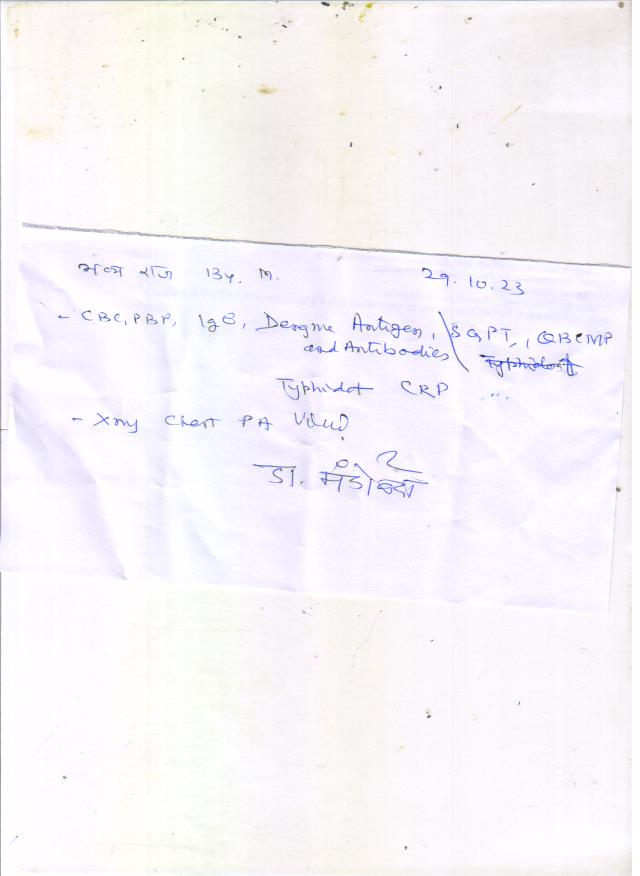 भव्य राज 13y. M. 29.10.23
- CBC, PBP, IgE, Dengue Antigen, SGPT, QBCMP
and Antibodies
Typhidot CRP
- Xray Chest PA View
डा.